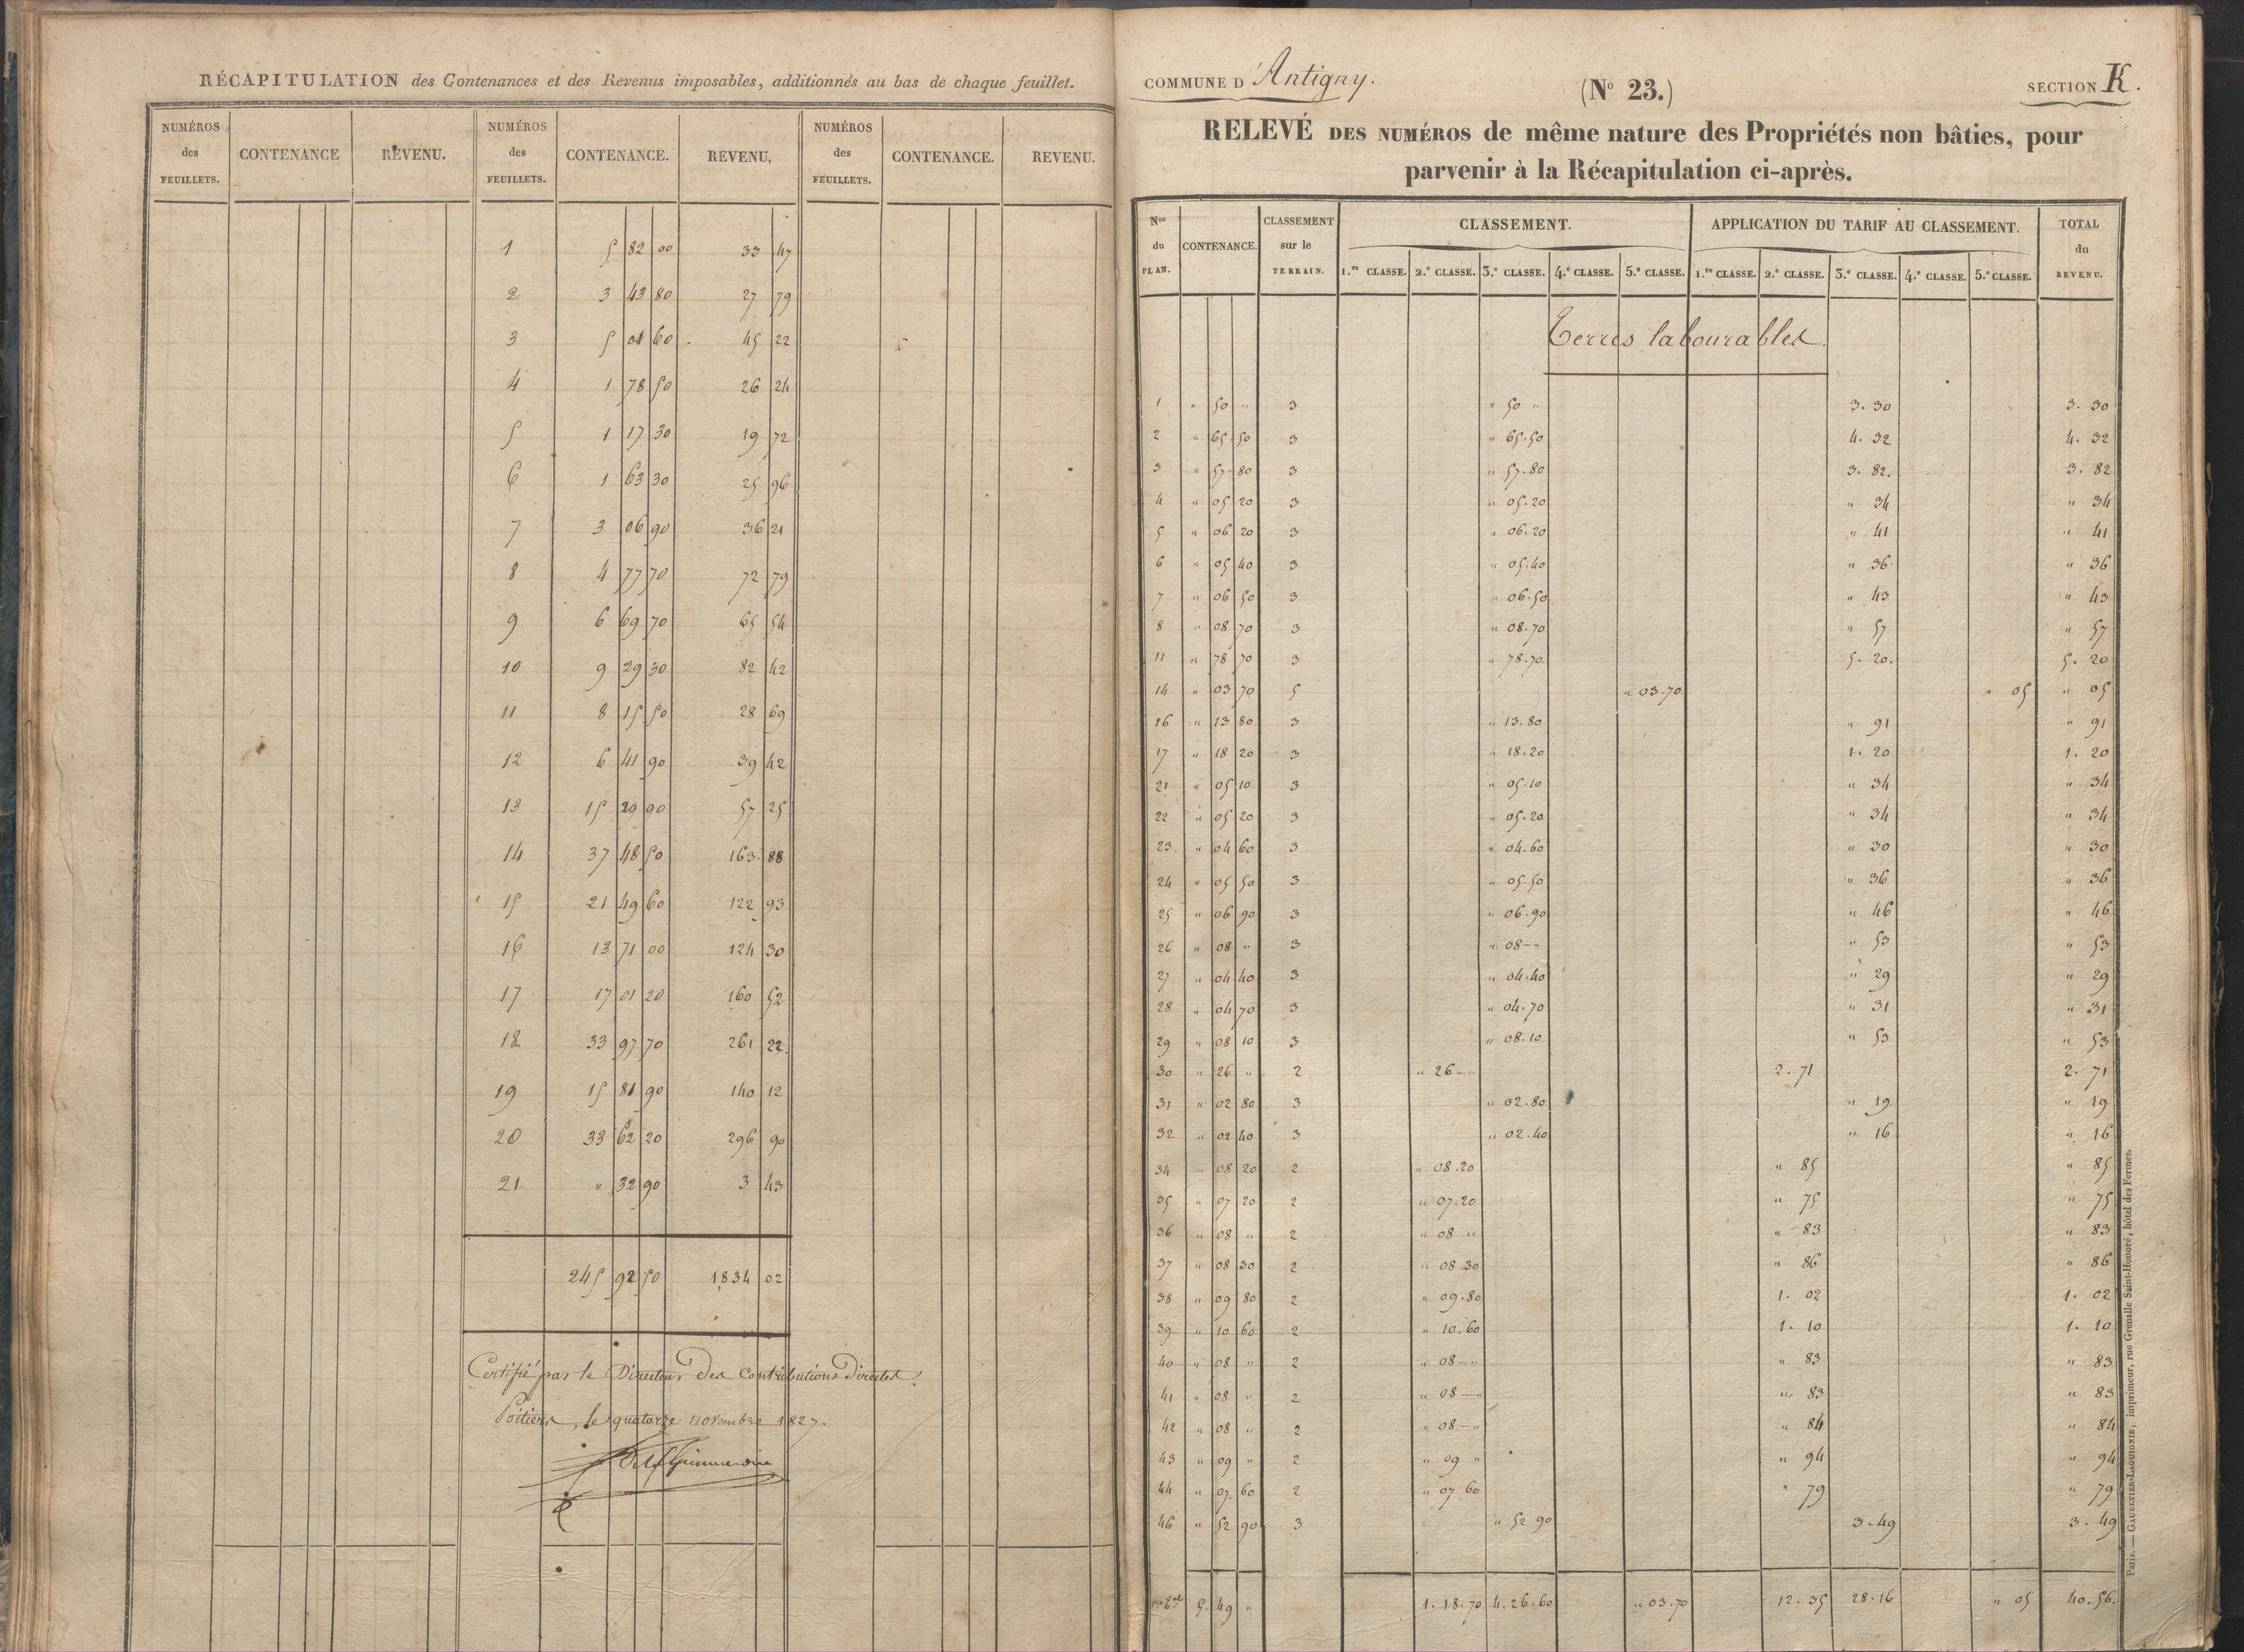 RÉCAPITULATION des Contenances et des Revenus imposables, additionnés au bas de chaque feuillet.
NUMÉROS des FEUILLETS. CONTENANCE REVENU. NUMÉROS des FEUILLETS. CONTENANCE. REVENU, NUMÉROS des FEUILLETS. CONTENANCE. REVENU.
1 5 82 00 33 47
2 3 43 80 27 79
3 5 01 60 45 22
4 1 78 50 26 24
5 1 17 30 19 72
6 1 63 30 25 96
7 3 06 90 36 21
8 4 77 70 72 79
9 6 69 70 65 54
10 9 29 30 82 42
11 8 15 50 28 69
12 6 41 90 39 42
13 15 29 90 57 25
14 37 48 50 163 88
15 21 49 60 122 93
16 13 71 00 124 30
17 17 01 20 160 52
18 33 97 70 261 22
19 15 81 90 140 12
20 33 62 20 296 90
21 " 32 90 3 43
245 92 50 1834 02
Certifié par le Directeur des Contributions directes.
Poitiers, le quatorze novembre 1827.
COMMUNE D'Antigny.
(No 23.)
SECTION K.
RELEVÉ DES NUMÉROS de même nature des Propriétés non bâties, pour
parvenir à la Récapitulation ci-après.
Nos du PLAN. CONTENANCE. CLASSEMENT sur le TERRAIN. CLASSEMENT. APPLICATION DU TARIF AU CLASSEMENT. TOTAL du REVENU.
1.re CLASSE. 2.e CLASSE. 3.e CLASSE. 4.e CLASSE. 5.e CLASSE. 1.re CLASSE. 2.e CLASSE. 3.e CLASSE. 4.e CLASSE. 5.e CLASSE.
Terres labourables.
1 " 50 " 3 " 50 " 3. 30 3. 30
2 " 65 50 3 " 65.50 4. 32 4. 32
3 " 57 80 3 " 57.80 3. 82. 3. 82
4 " 05 20 3 " 05.20 " 34 " 34
5 " 06 20 3 " 06.20 " 41 " 41
6 " 05 40 3 " 05.40 " 36 " 36
7 " 06 50 3 " 06.50 " 43 " 43
8 " 08 70 3 " 08.70 " 57 " 57
11 " 78 70 3 " 78.70. 5. 20. 5. 20
14 " 03 70 5 " 03.70 " 05 " 05
16 " 13 80 3 " 13.80 " 91 " 91
17 " 18 20 3 " 18.20 1. 20 1. 20
21 " 05 10 3 " 05.10 " 34 " 34
22 " 05 20 3 " 05.20 " 34 " 34
23 " 04 60 3 " 04.60 " 30 " 30
24 " 05 50 3 " 05.50 " 36 " 36
25 " 06 90 3 " 06.90 " 46 " 46
26 " 08 " 3 " 08-" " 53 " 53
27 " 04 40 3 " 04.40 " 29 " 29
28 " 04 70 3 " 04.70 " 31 " 31
29 " 08 10 3 " 08.10 " 53 " 53
30 " 26 " 2 " 26-" 2. 71 2. 71
31 " 02 80 3 " 02.80 " 19 " 19
32 " 02 40 3 " 02.40 " 16 " 16
34 " 08 20 2 " 08.20 " 85 " 85
35 " 07 20 2 " 07.20 " 75 " 75
36 " 08 " 2 " 08 " " 83 " 83
37 " 08 30 2 " 08.30 " 86 " 86
38 " 09 80 2 " 09.80 1. 02 1. 02
39 " 10 60 2 " 10.60 1. 10 1. 10
40 " 08 " 2 " 08-" " 83 " 83
41 " 08 " 2 " 08-" " 83 " 83
42 " 08 " 2 " 08-" " 84 " 84
43 " 09 " 2 " 09 " " 94 " 94
44 " 07 60 2 " 07 60 " 79 " 79
46 " 52 90 3 " 52 90 3. 49 3. 49
5. 49 " 1.18.70 4.26.60 " 03.70 12.35 28.16 " 05 40.56.
Paris. — GAULTIER-LAGUIONIE, imprimeur, rue Grenelle Saint-Honoré, hôtel des Fermes.